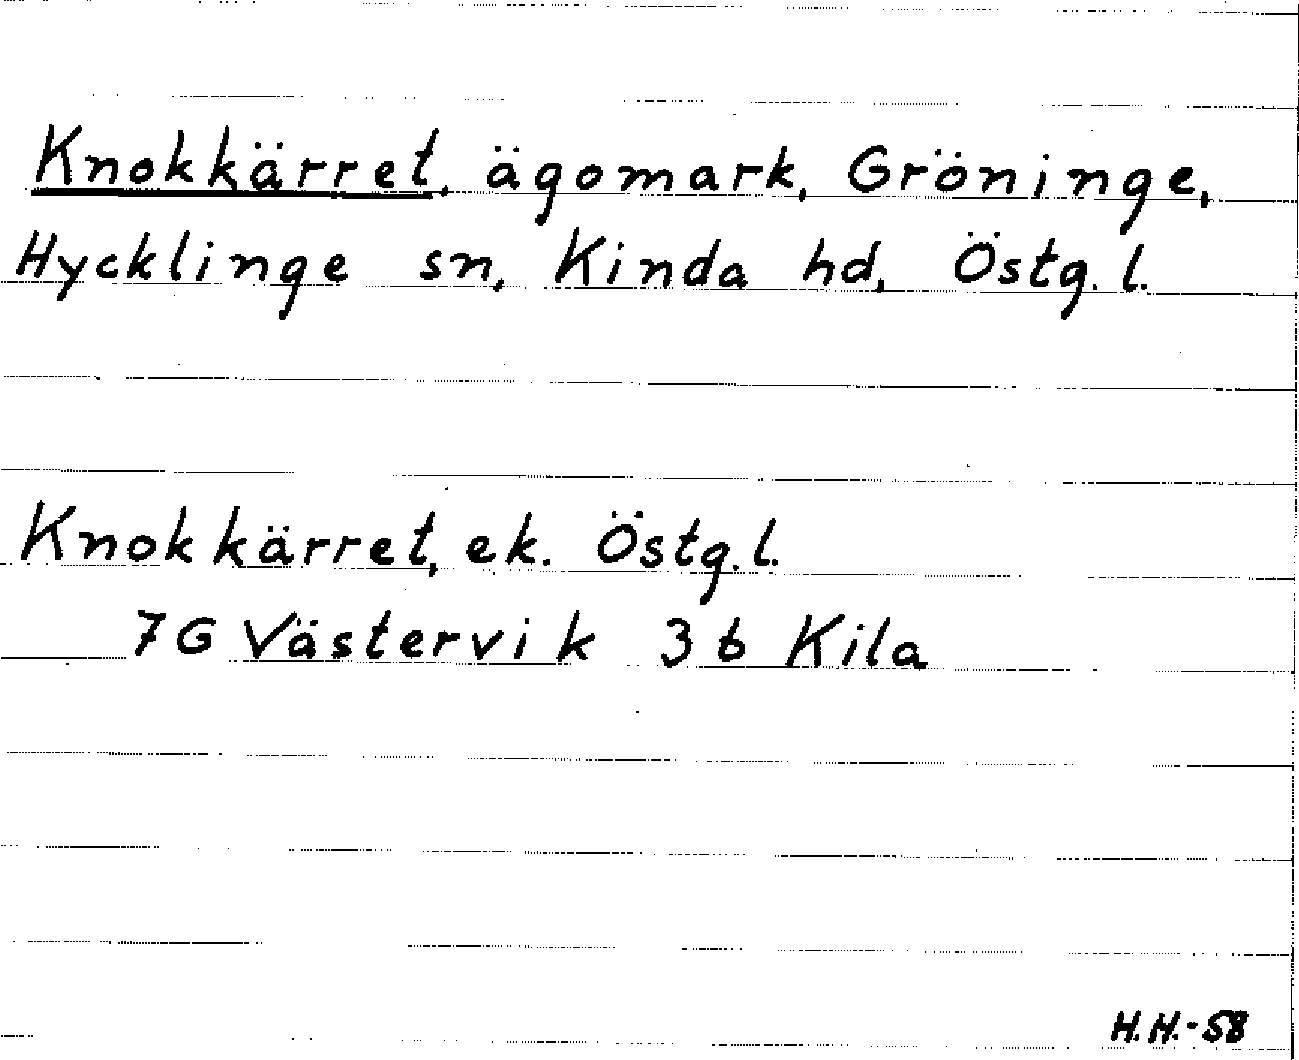 Knokkärret, ägomark, Gröninge,
Hycklinge sn, Kinda hd, Östg. l.
Knokkärret, ek. Östg. l.
7G Västervik 3b Kila
H.H.-58